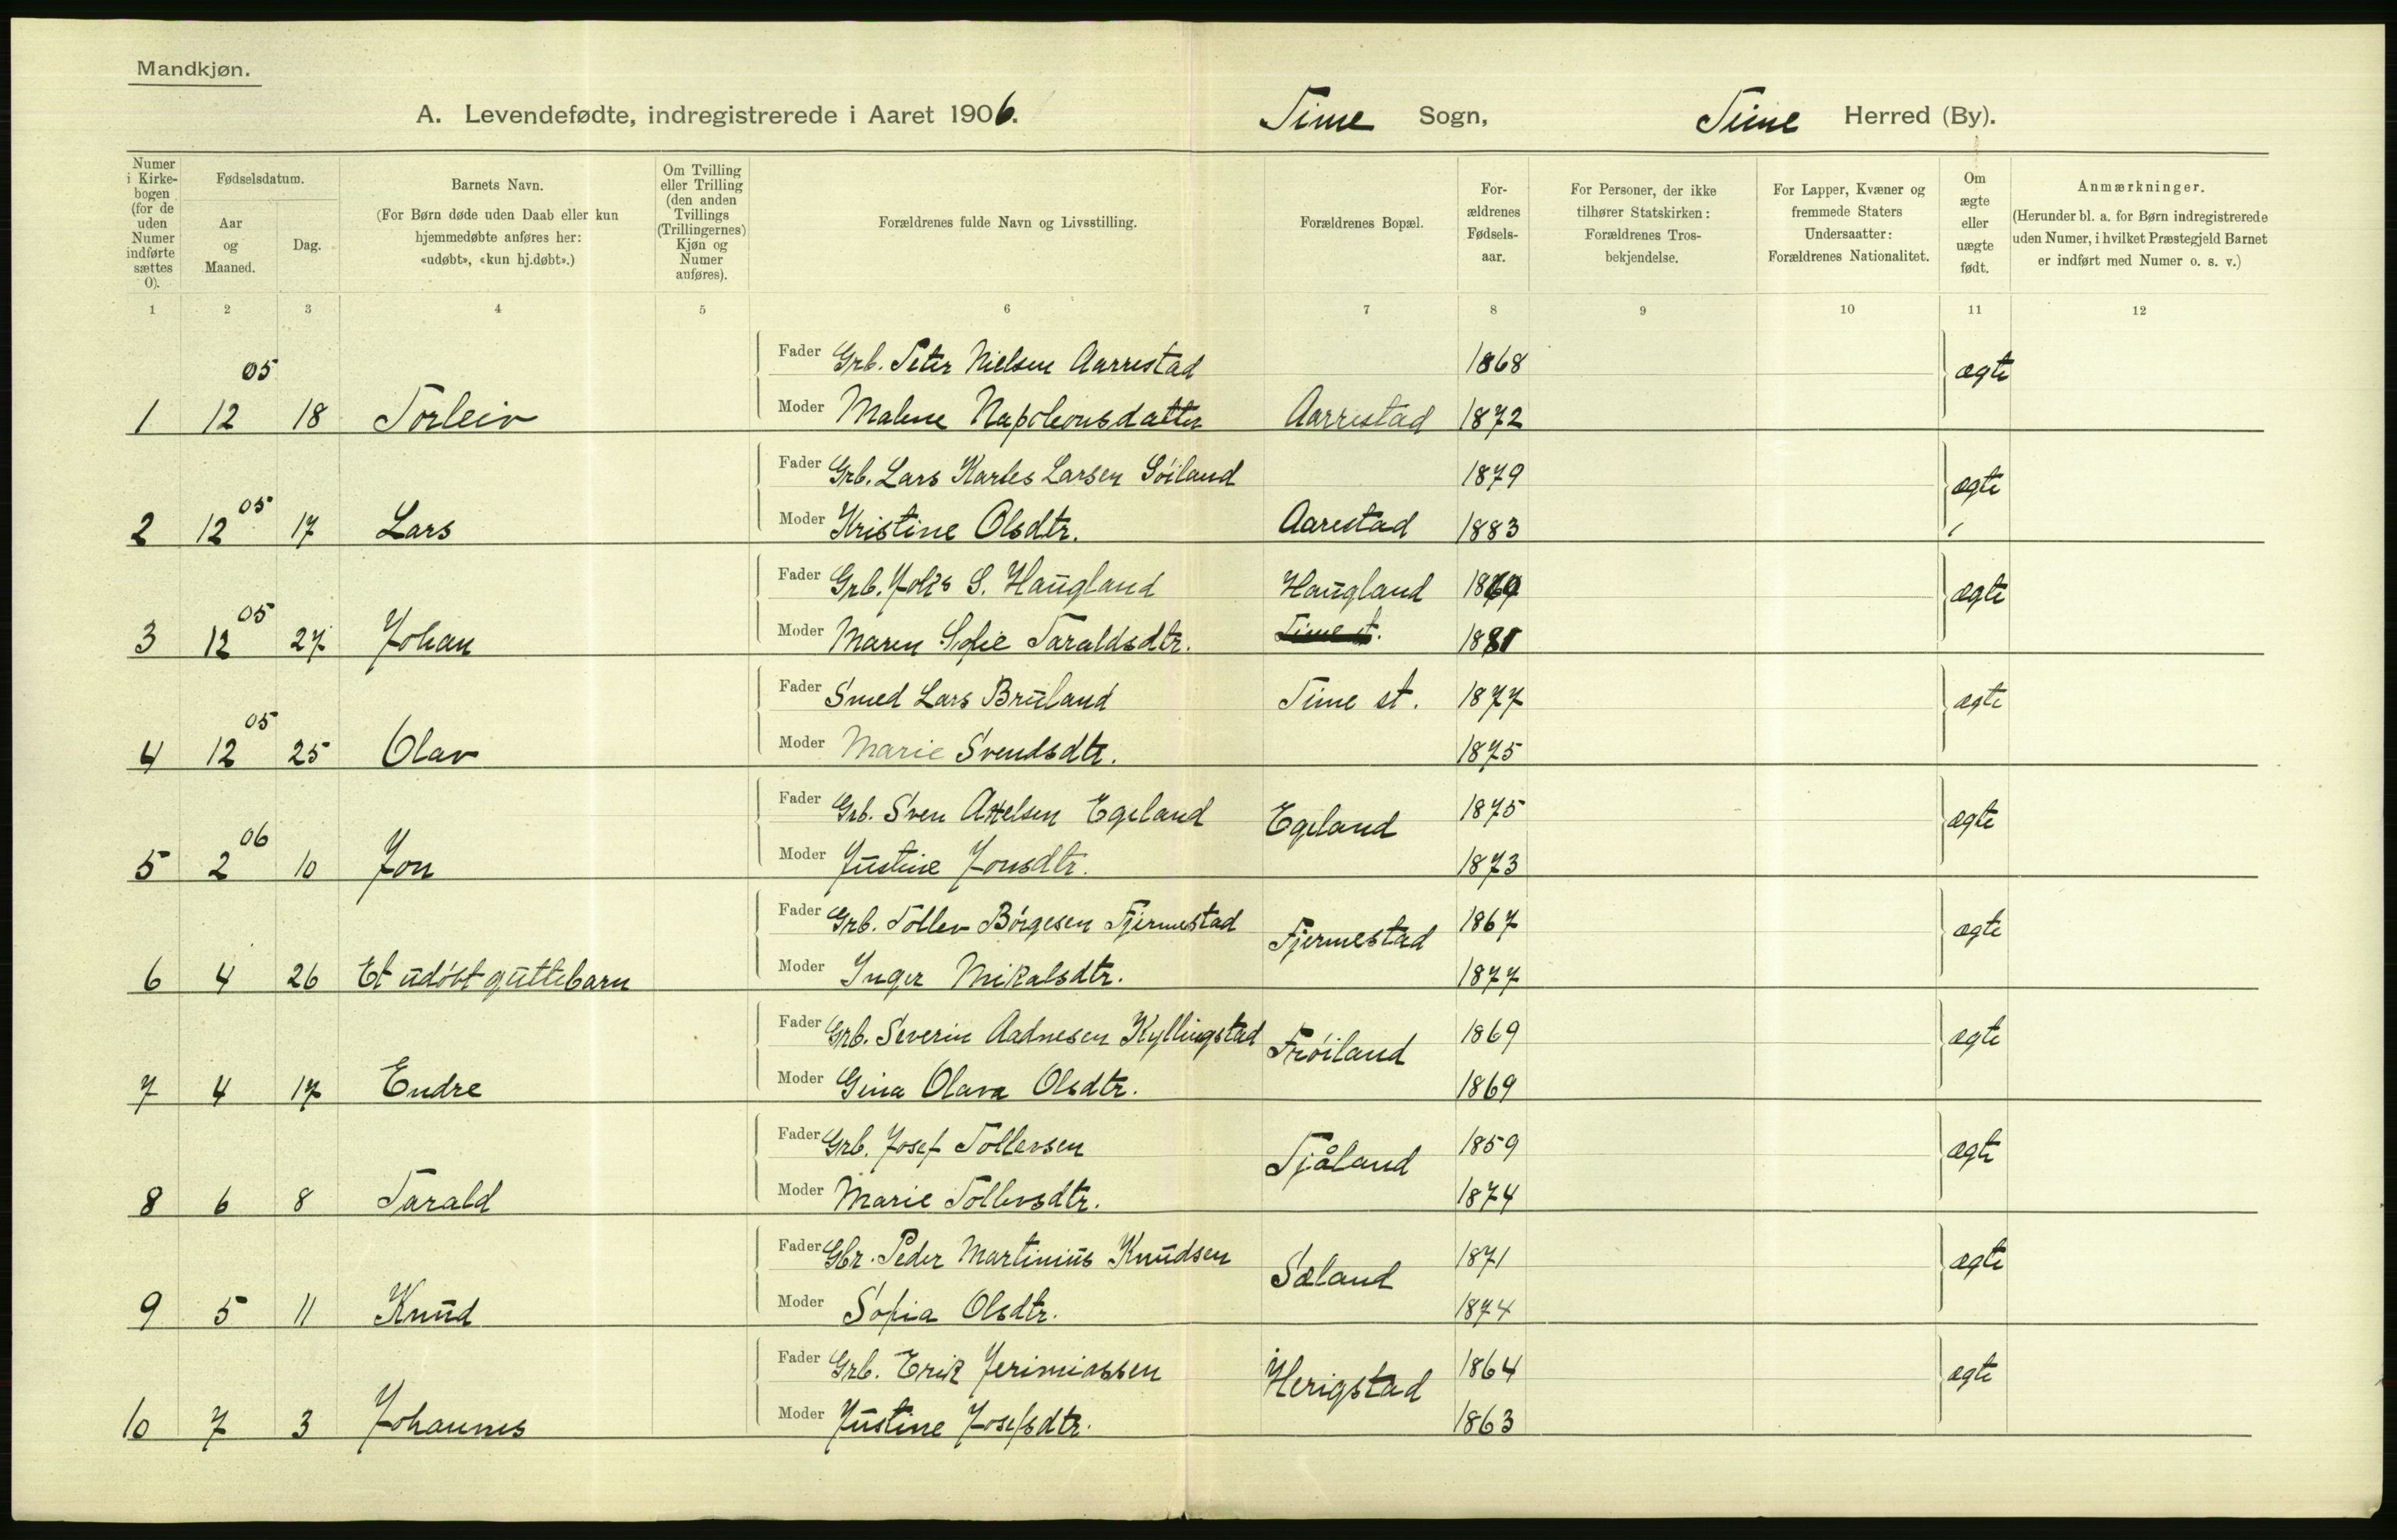 Mandkjøn.
A. Levendefødte, indregistrerede i Aaret 1906. Time Sogn, Time Herred (By).
Numer i Kirkebogen (for de uden Numer indførte sættes 0).
Fødselsdatum.
Aar og Maaned.
Dag.
Barnets Navn.
(For Børn døde uden Daab eller kun hjemmedøbte anføres her: «udøbt», «kun hj.døbt».)
Om Tvilling eller Trilling (den anden Tvillings (Trillingernes) Kjøn og Numer anføres).
Forældrenes fulde Navn og Livsstilling.
Forældrenes Bopæl.
Forældrenes Fødselsaar.
For Personer, der ikke tilhører Statskirken: Forældrenes Trosbekjendelse.
For Lapper, Kvæner og fremmede Staters Undersaatter: Forældrenes Nationalitet.
Om ægte eller uægte født.
Anmærkninger.
(Herunder bl. a. for Børn indregistrerede uden Numer, i hvilket Præstegjeld Barnet er indført med Numer o. s. v.)
1 2 3 4 5 6 7 8 9 10 11 12
Fader Grb. Peter Nielsen Aarrestad 1868 ægte
05
1 12 18 Torleiv Moder Malene Napoleonsdatter Aarrestad 1872
Fader Grb. Lars Karles Larsen Söiland 1879 ægte
05
2 12 17 Lars Moder Kristine Olsdtr. Aarestad 1883
Fader Grb. S. Haugland Haugland 1869 ægte
05
3 12 27 Johan Moder Maren Sofie Taraldsdtr. Time st. 1881
Fader Smed Lars Bruland Time st. 1877 ægte
05
4 12 25 Olav Moder Marie Svendsdtr. 1875
Fader Grb. Sven Egeland Egeland 1875 ægte
06
5 2 10 Jon Moder Justine Jonsdtr. 1873
Fader Grb. Tollev Börgesen Fjermestad Fjermestad 1867 ægte
6 4 26 Et udöbt guttebarn Moder Inger Mikalsdtr. 1877
Fader Grb. Severin Aadnesen Kyllingstad Fröiland 1869 ægte
7 4 17 Endre Moder Gina Olava Olsdtr. 1869
Fader Grb. Josef Tollevsen Tjåland 1859 ægte
8 6 8 Tarald Moder Marie Tollevsdtr. 1874
Fader Gbr. Peder Martinius Knudsen Sæland 1871 ægte
9 5 11 Knud Moder Sofia Olsdtr. 1874
Fader Grb. Erik Jerimiassen Herigstad 1864 ægte
10 7 3 Johannes Moder Justine Josefsdtr. 1863